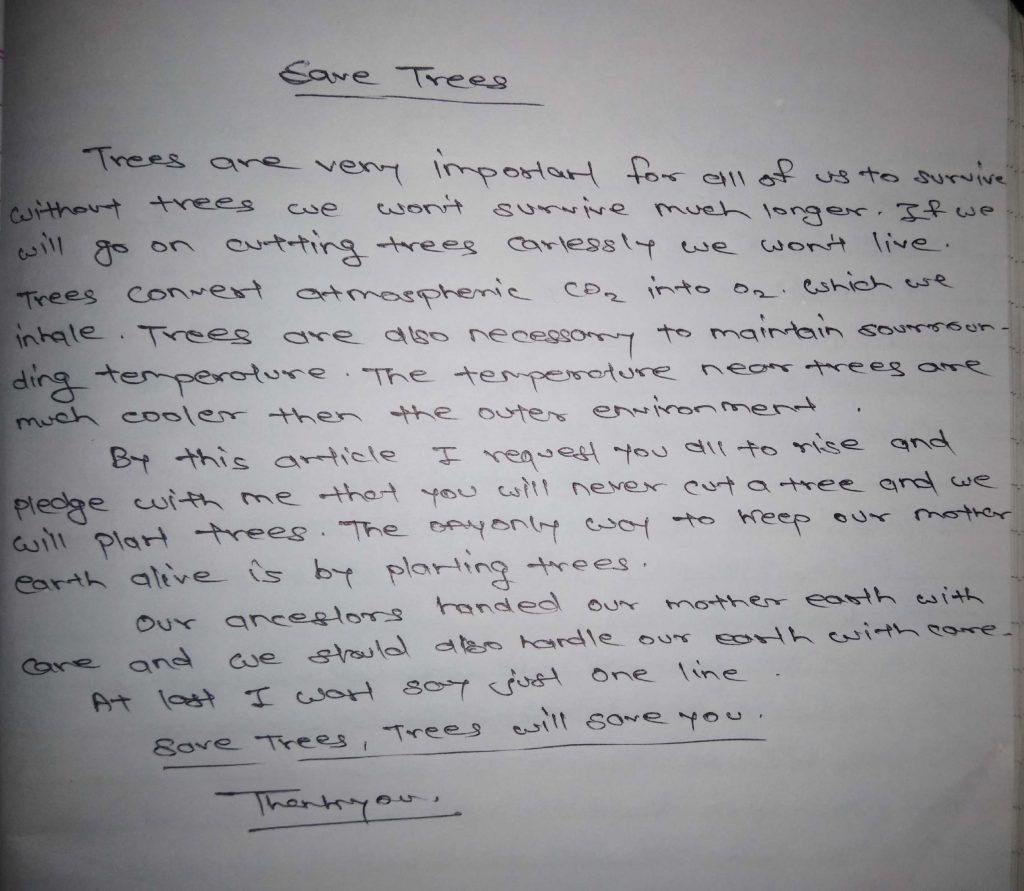 Save Trees
Trees are very important for all of us to survive
without trees we won't survive much longer. If we
will go on cutting trees carlessly we won't live.
Trees convert atmospheric CO₂ into O₂. Which we
inhale. Trees are also necessary to maintain sourroun-
ding temperature. The temperature near trees are
much cooler then the outer environment.
By this article I request you all to rise and
pledge with me that you will never cut a tree and we
will plant trees. The only way to keep our mother
earth alive is by planting trees.
Our ancestors handed our mother earth with
care and we should also handle our earth with care.
At last I want say just one line.
Save Trees, Trees will save you.
Thankyou.